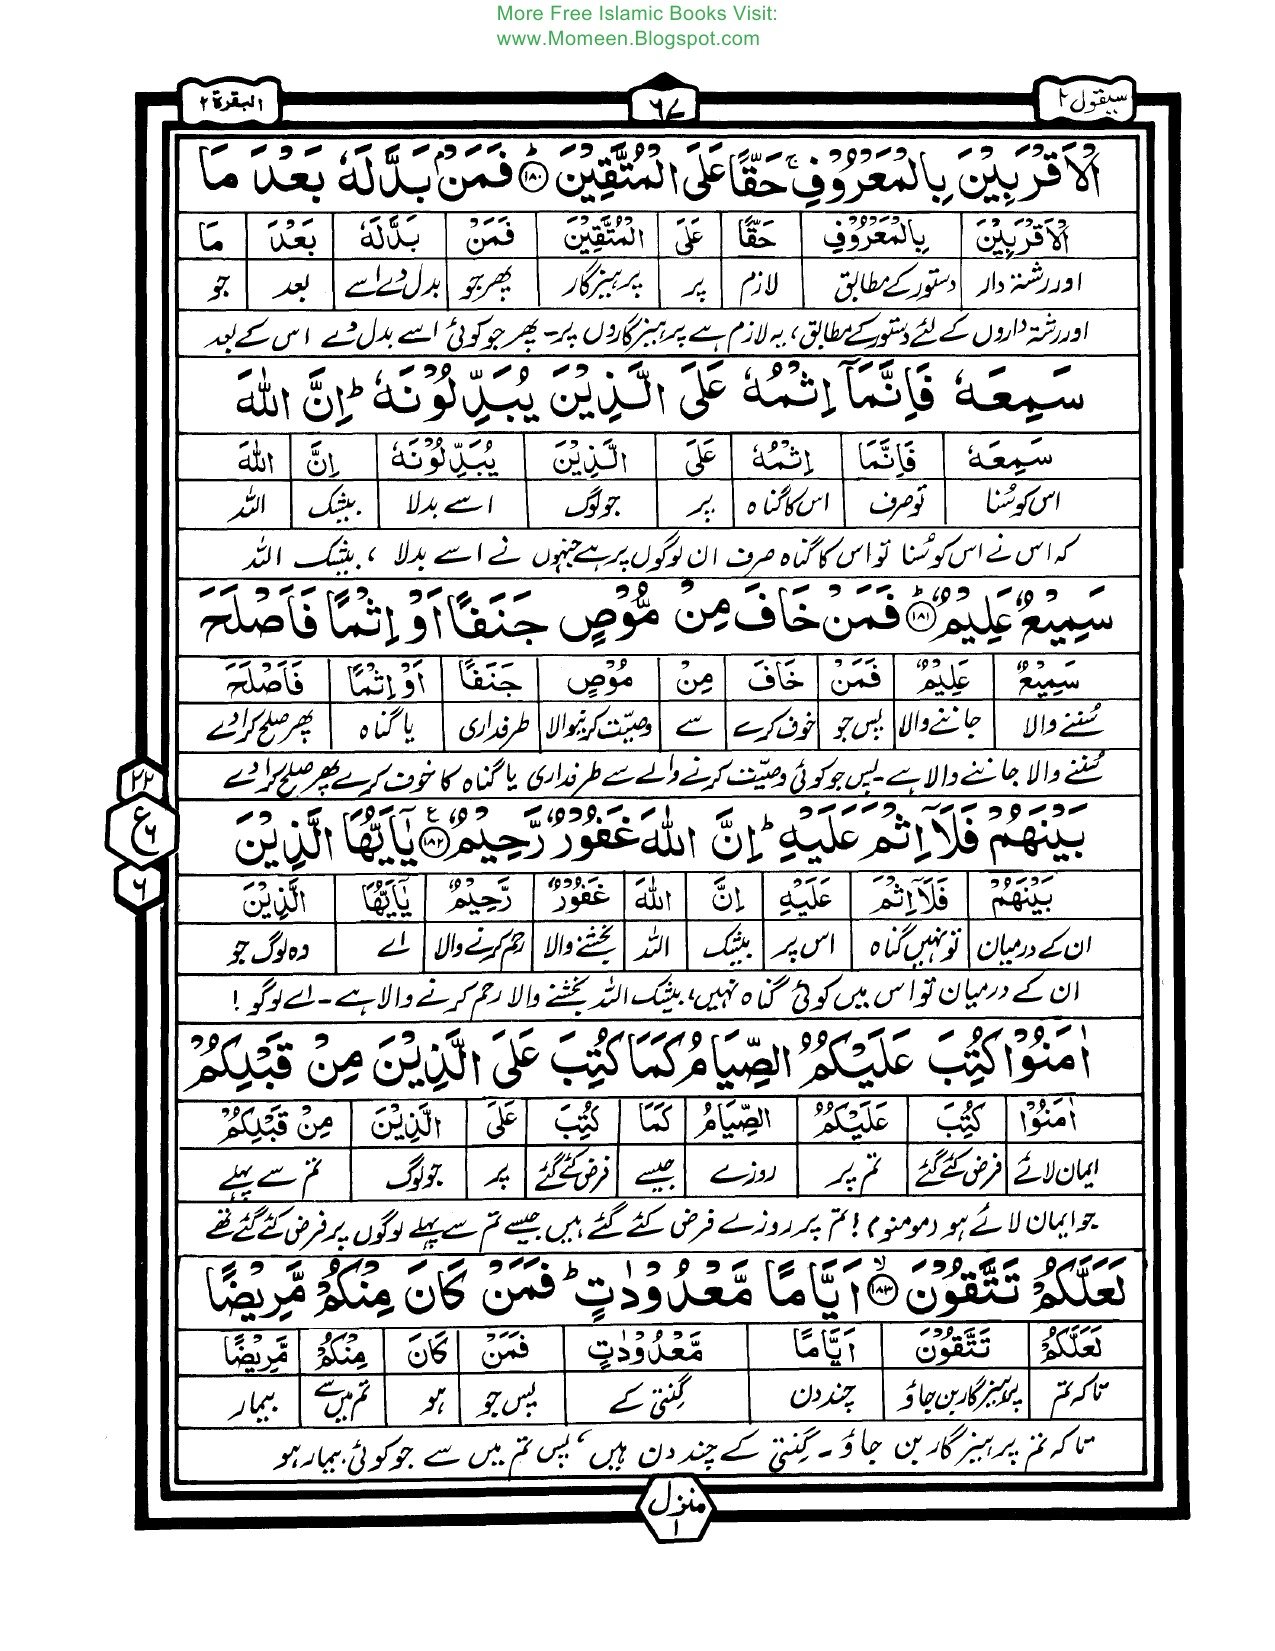 More Free Islamic Books Visit:
www.Momeen.Blogspot.com
سیقول ۲ ۶۷ البقرة ۲
الْاَقْرَبِیْنَ بِالْمَعْرُوْفِ ۚ حَقًّا عَلَی الْمُتَّقِیْنَ ؕ۱۸۰ فَمَنْۢ بَدَّلَهٗ بَعْدَ مَا
الْاَقْرَبِیْنَ بِالْمَعْرُوْفِ حَقًّا عَلَی الْمُتَّقِیْنَ فَمَنْ بَدَّلَهٗ بَعْدَ مَا
اور رشتہ دار دستور کے مطابق لازم پر پرہیزگار پھر جو بدل دے اسے بعد جو
اور رشتہ داروں کے لئے دستور کے مطابق، یہ لازم ہے پرہیزگاروں پر۔ پھر جو کوئی اسے بدل دے اس کے بعد
سَمِعَهٗ فَاِنَّمَاۤ اِثْمُهٗ عَلَی الَّذِیْنَ یُبَدِّلُوْنَهٗ ؕ اِنَّ اللّٰهَ
سَمِعَهٗ فَاِنَّمَا اِثْمُهٗ عَلَی الَّذِیْنَ یُبَدِّلُوْنَهٗ اِنَّ اللّٰهَ
اس کو سُنا تو صرف اس کا گناہ پر جو لوگ اسے بدلا بیشک اللہ
کہ اس نے اس کو سُنا تو اس کا گناہ صرف ان لوگوں پر ہے جنہوں نے اسے بدلا ، بیشک اللہ
سَمِیْعٌ عَلِیْمٌ ؕ۱۸۱ فَمَنْ خَافَ مِنْ مُّوْصٍ جَنَفًا اَوْ اِثْمًا فَاَصْلَحَ
سَمِیْعٌ عَلِیْمٌ فَمَنْ خَافَ مِنْ مُوْصٍ جَنَفًا اَوْ اِثْمًا فَاَصْلَحَ
سُننے والا جاننے والا پس جو خوف کرے سے وصیّت کرنیوالا طرفداری یا گناہ پھر صلح کرا دے
سُننے والا جاننے والا ہے۔ پس جو کوئی وصیّت کرنے والے سے طرفداری یا گناہ کا خوف کرے پھر صلح کرا دے
۲۲
ع
۶
۶
بَیْنَهُمْ فَلَاۤ اِثْمَ عَلَیْهِ ؕ اِنَّ اللّٰهَ غَفُوْرٌ رَّحِیْمٌ ۱۸۲ یٰۤاَیُّهَا الَّذِیْنَ
بَیْنَهُمْ فَلَاۤ اِثْمَ عَلَیْهِ اِنَّ اللّٰهَ غَفُوْرٌ رَّحِیْمٌ یٰۤاَیُّهَا الَّذِیْنَ
ان کے درمیان تو نہیں گناہ اس پر بیشک اللہ بخشنے والا رحم کرنے والا اے وہ لوگ جو
ان کے درمیان تو اس میں کوئی گناہ نہیں، بیشک اللہ بخشنے والا رحم کرنے والا ہے۔ اے لوگو !
اٰمَنُوْا كُتِبَ عَلَیْكُمُ الصِّیَامُ كَمَا كُتِبَ عَلَی الَّذِیْنَ مِنْ قَبْلِكُمْ
اٰمَنُوْا كُتِبَ عَلَیْكُمُ الصِّیَامُ كَمَا كُتِبَ عَلَی الَّذِیْنَ مِنْ قَبْلِكُمْ
ایمان لائے فرض کئے گئے تم پر روزے جیسے فرض کئے گئے پر جو لوگ تم سے پہلے
جو ایمان لائے ہو (مومنو) ! تم پر روزے فرض کئے گئے ہیں جیسے تم سے پہلے لوگوں پر فرض کئے گئے تھے
لَعَلَّكُمْ تَتَّقُوْنَ ۙ۱۸۳ اَیَّامًا مَّعْدُوْدٰتٍ ؕ فَمَنْ كَانَ مِنْكُمْ مَّرِیْضًا
لَعَلَّكُمْ تَتَّقُوْنَ اَیَّامًا مَّعْدُوْدٰتٍ فَمَنْ كَانَ مِنْكُمْ مَّرِیْضًا
تاکہ تم پرہیزگار بن جاؤ چند دن گنتی کے پس جو ہو تم میں سے بیمار
تاکہ تم پرہیزگار بن جاؤ ۔ گنتی کے چند دن ہیں، پس تم میں سے جو کوئی بیمار ہو
منزل ۱